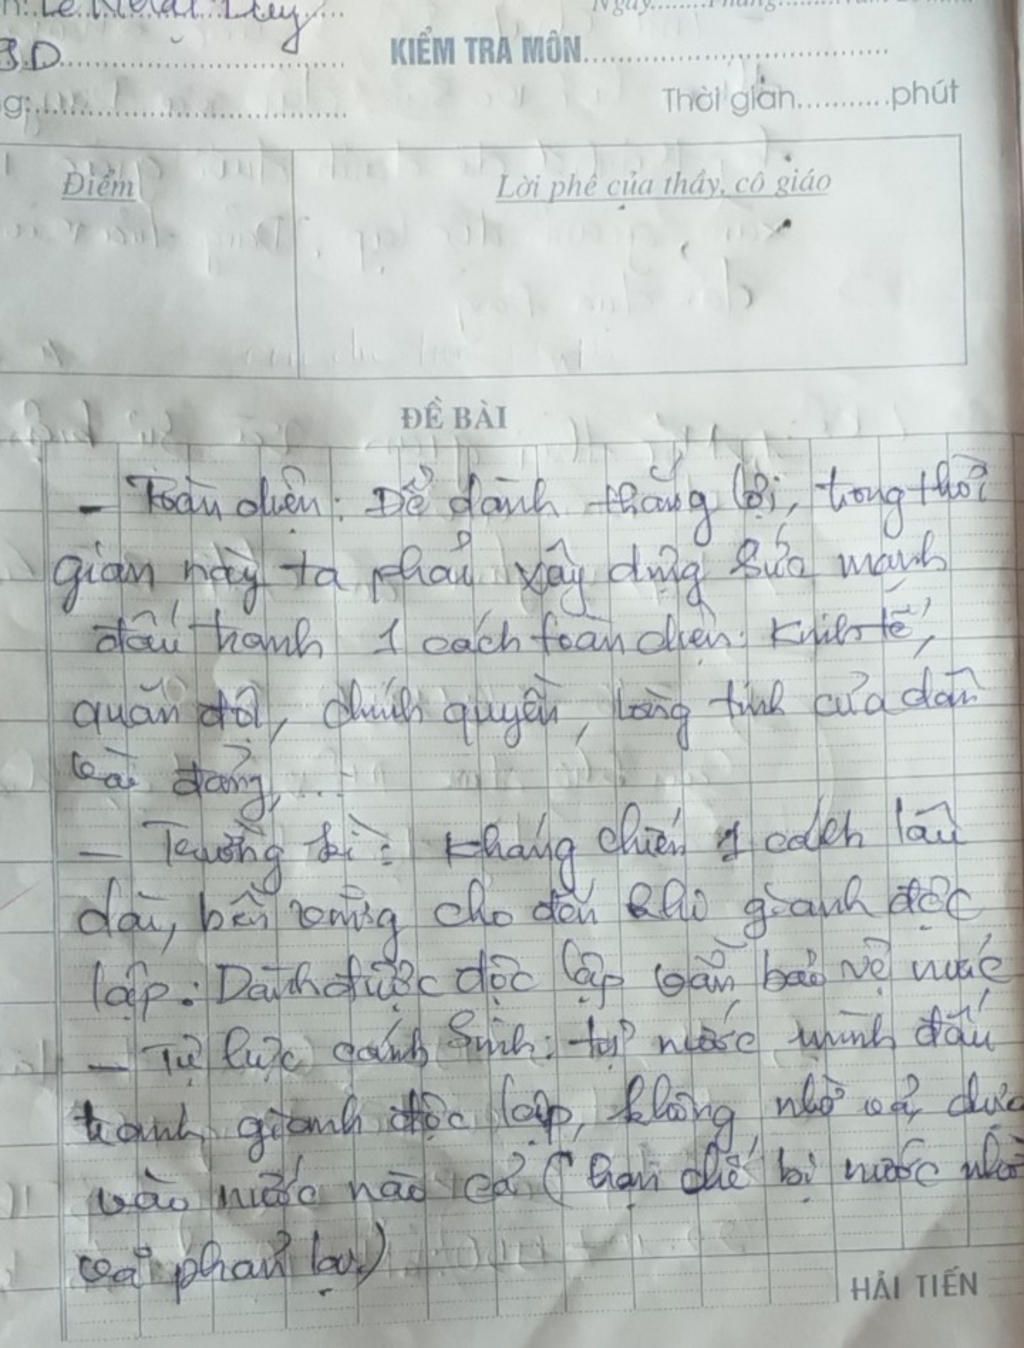 Ngày........Tháng.........
3D
KIỂM TRA MÔN
g:
Thời gian...........phút
Điểm
Lời phê của thầy, cô giáo
ĐỀ BÀI
- Toàn diện: Để dành thắng lợi, trong thời
gian này ta phải xây dựng sức mạnh
đấu tranh 1 cách toàn diện: Kinh tế,
quân đội, chính quyền, lòng tinh của dân
và đảng,...
- Trường kì: Kháng chiến 1 cách lâu
dài, bền vững cho đến khi giành độc
lập: Dành được độc lập vẫn bảo vệ nước
- Tự lực cánh sinh: tự nước mình đấu
tranh giành độc lập, không nhờ vả, dựa
vào nước nào cả (hạn chế bị nước nhờ
vả phản lại)
HẢI TIẾN